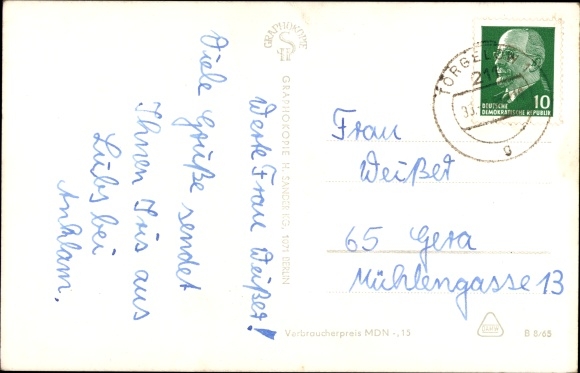 Werte Frau Weißer!
Viele Grüße sendet
Ihnen Iris aus
Lübs bei
Anklam.
GRAPHOKOPIE
GRAPHOKOPIE H. SANDER KG, 1071 BERLIN
Verbraucherpreis MDN -,15
TORGELOW
211
g
10
DEUTSCHE
DEMOKRATISCHE REPUBLIK
Frau
Weißer
65 Gera
Mühlengasse 13
B 8/65